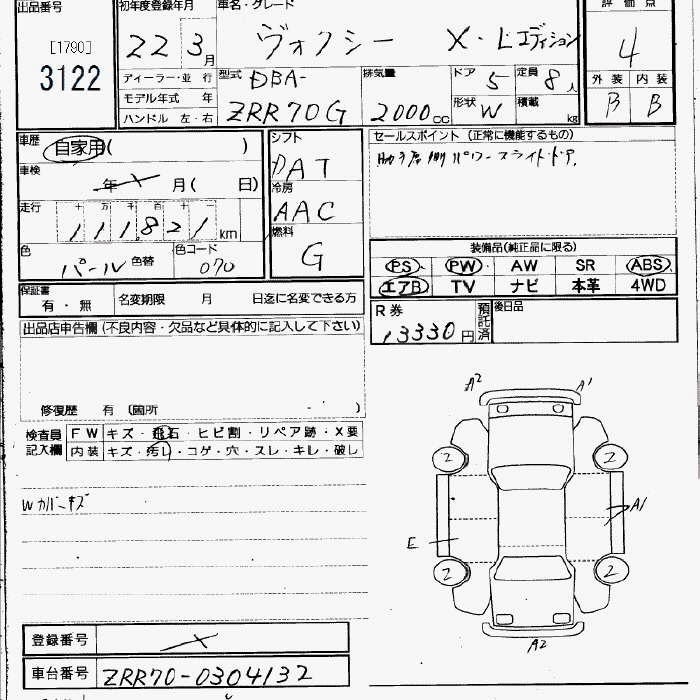 出品番号
[1790]
3122
初年度登録年月
22 3月
ディーラー・並 行
モデル年式 年
ハンドル 左・右
車名・グレード
ヴォクシー X・Lエディション
型式 DBA-
ZRR70G
排気量
2000cc
ドア 5
定員 8人
形状 W
積載 kg
評価点
4
外装 内装
B B
車歴 自家用( )
車検 年 X 月( 日)
走行 十 万 千 百 十 一
111,821km
色 パール 色替
色コード 070
シフト
DAT
冷房
AAC
燃料
G
セールスポイント (正常に機能するもの)
助手席側パワースライドドア,
装備品(純正品に限る)
PS PW AW SR ABS
エアB TV ナビ 本革 4WD
保証書
有・無
名変期限 月 日迄に名変できる方
R券
13330円
預託済
後日品
出品店申告欄(不良内容・欠品など具体的に記入して下さい)
修復歴 有 (箇所 )
検査員記入欄
FW キズ・飛石・ヒビ割・リペア跡・X要
内装 キズ・汚れ・コゲ・穴・スレ・キレ・破し
Wカバーキズ
A2 A1
2 2
A1
E
2 2
A2
登録番号 X
車台番号 ZRR70-0304132